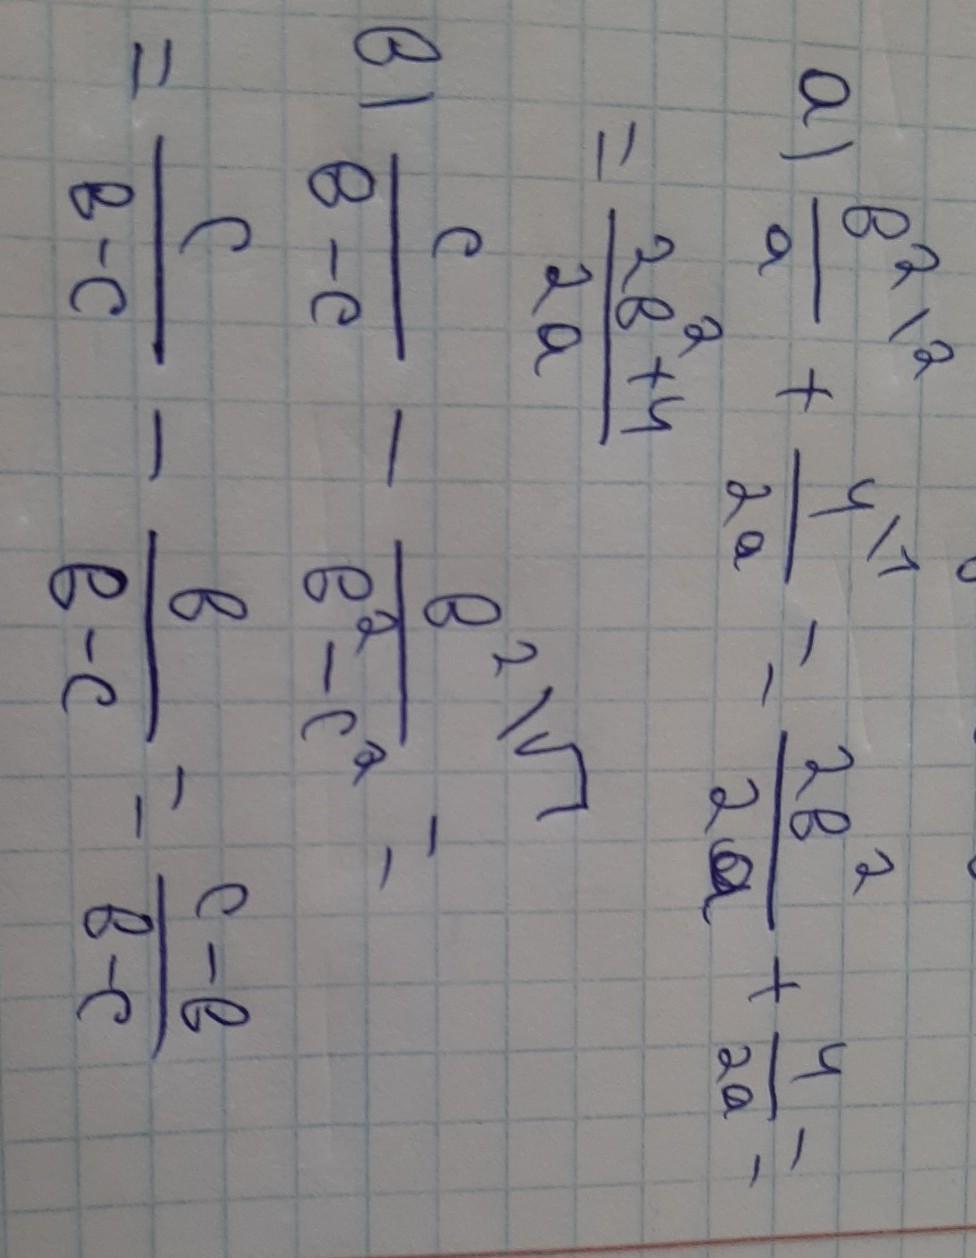 а) в²\² / a + 4\¹ / 2a = 2в² / 2a + 4 / 2a =
= 2в² + 4 / 2a
в) c / в - c - в²\√ / в² - c² =
= c / в - c - в / в - c = c - в / в - c